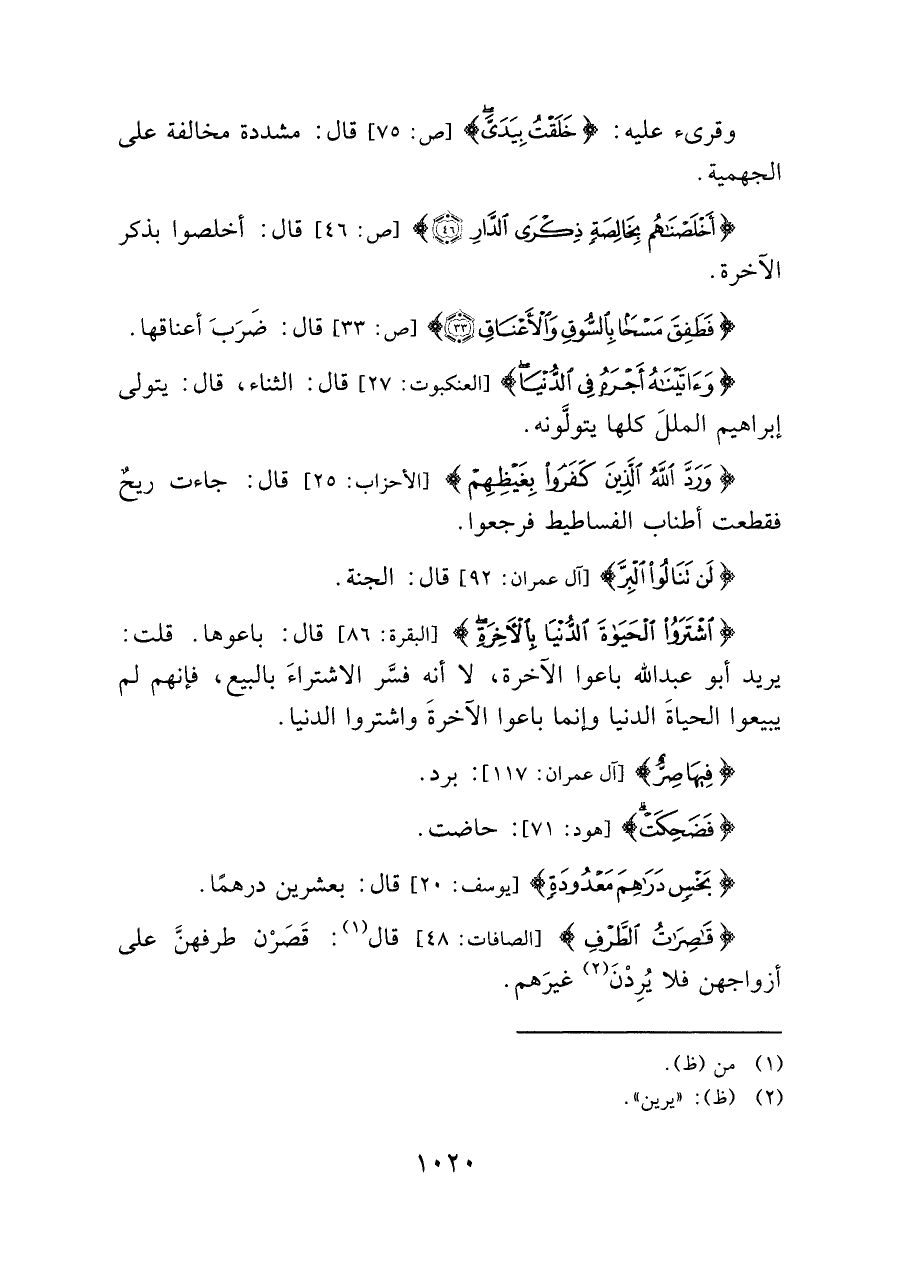 وقرىء عليه: ﴿خَلَقْتُ بِيَدَيَّۖ﴾ [ص: ٧٥] قال: مشددة مخالفة على
الجهمية.
﴿أَخْلَصْنَٰهُم بِخَالِصَةٍ ذِكْرَى ٱلدَّارِ ٤٦﴾ [ص: ٤٦] قال: أخلصوا بذكر
الآخرة.
﴿فَطَفِقَ مَسْحًۢا بِٱلسُّوقِ وَٱلْأَعْنَاقِ ٣٣﴾ [ص: ٣٣] قال: ضَرَبَ أعناقها.
﴿وَءَاتَيْنَٰهُ أَجْرَهُۥ فِى ٱلدُّنْيَاۖ﴾ [العنكبوت: ٢٧] قال: الثناء، قال: يتولى
إبراهيم المللَ كلها يتولَّونه.
﴿وَرَدَّ ٱللَّهُ ٱلَّذِينَ كَفَرُوا۟ بِغَيْظِهِمْ﴾ [الأحزاب: ٢٥] قال: جاءت ريحٌ
فقطعت أطناب الفساطيط فرجعوا.
﴿لَن نَنَالُوا۟ ٱلْبِرَّ﴾ [آل عمران: ٩٢] قال: الجنة.
﴿ٱشْتَرَوُا۟ ٱلْحَيَوٰةَ ٱلدُّنْيَا بِٱلْءَاخِرَةِۖ﴾ [البقرة: ٨٦] قال: باعوها. قلت:
يريد أبو عبدالله باعوا الآخرة، لا أنه فسَّر الاشتراءَ بالبيع، فإنهم لم
يبيعوا الحياةَ الدنيا وإنما باعوا الآخرةَ واشتروا الدنيا.
﴿فِيهَا صِرٌّ﴾ [آل عمران: ١١٧]: برد.
﴿فَضَحِكَتْ﴾ [هود: ٧١]: حاضت.
﴿بَخْسٍ دَرَٰهِمَ مَعْدُودَةٍ﴾ [يوسف: ٢٠] قال: بعشرين درهمًا.
﴿قَٰصِرَٰتُ ٱلطَّرْفِ﴾ [الصافات: ٤٨] قال(١): قَصَرْن طرفهنَّ على
أزواجهن فلا يُرِدْنَ(٢) غيرَهم.
(١) من (ظ).
(٢) (ظ): «يرين».
١٠٢٠